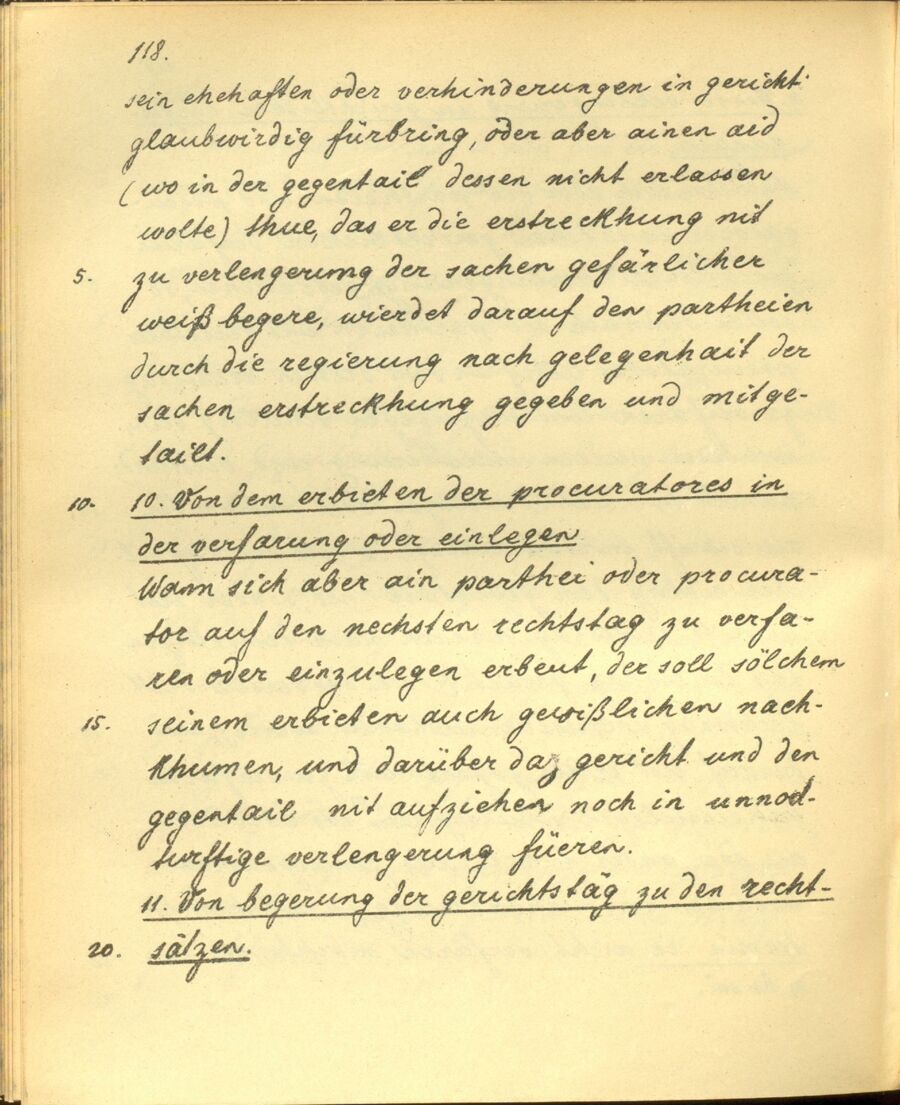 118.
sein ehehaften oder verhinderungen in gericht
glaubwirdig fürbring, oder aber ainen aid
(wo in der gegentail dessen nicht erlassen
wolte) thue, das er die erstreckhung nit
5. zu verlengerung der sachen gefärlicher
weiß begere, wierdet darauf den partheien
durch die regierung nach gelegenhait der
sachen erstreckhung gegeben und mitge-
tailt.
10. 10. Von dem erbieten der procuratores in
der verfarung oder einlegen
Wann sich aber ain parthei oder procura-
tor auf den nechsten rechtstag zu verfa-
ren oder einzulegen erbeut, der soll sölchem
15. seinem erbieten auch gewißlichen nach-
khumen, und darüber daz gericht und den
gegentail nit aufziehen noch in unnod-
turftige verlengerung füeren.
11. Von begerung der gerichtstäg zu den recht-
20. sätzen.